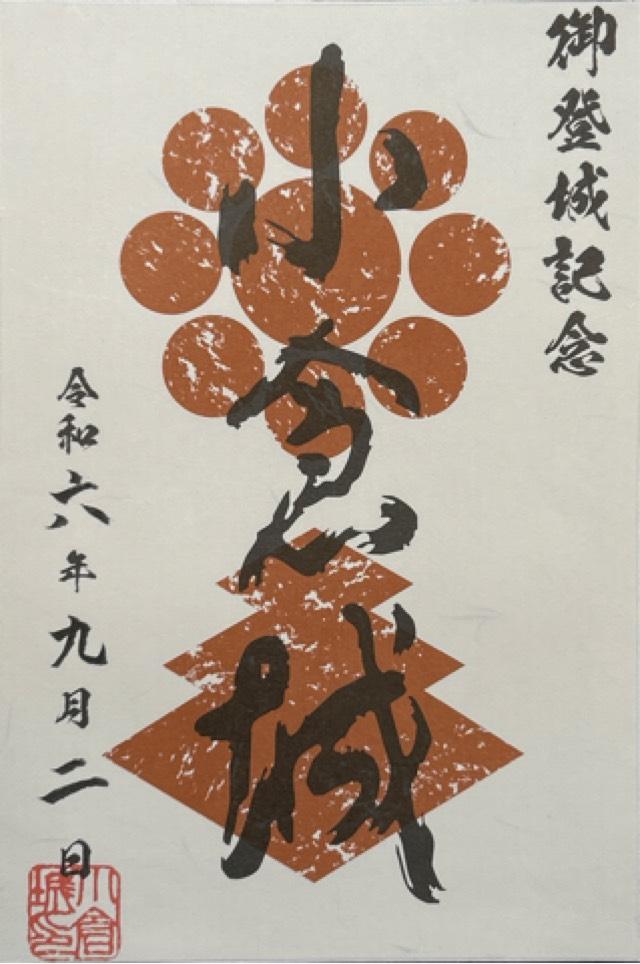 御登城記念
小倉城
令和六年九月二日
小倉城印